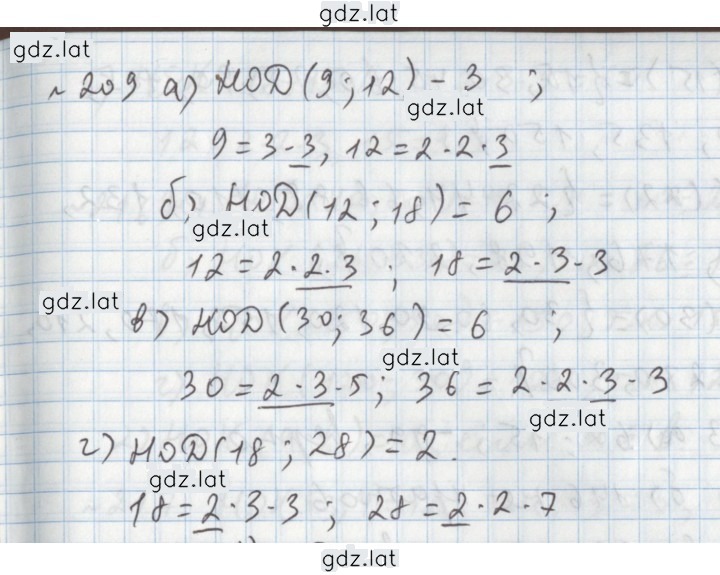 gdz.lat
gdz.lat
№ 209 а) НОД(9; 12) - 3 ;
gdz.lat
9 = 3 · 3, 12 = 2 · 2 · 3
б) НОД(12; 18) = 6 ;
gdz.lat
12 = 2 · 2 · 3 ; 18 = 2 · 3 · 3
gdz.lat
в) НОД(30; 36) = 6 ;
gdz.lat
30 = 2 · 3 · 5; 36 = 2 · 2 · 3 · 3
gdz.lat
г) НОД(18; 28) = 2.
gdz.lat
18 = 2 · 3 · 3 ; 28 = 2 · 2 · 7
gdz.lat